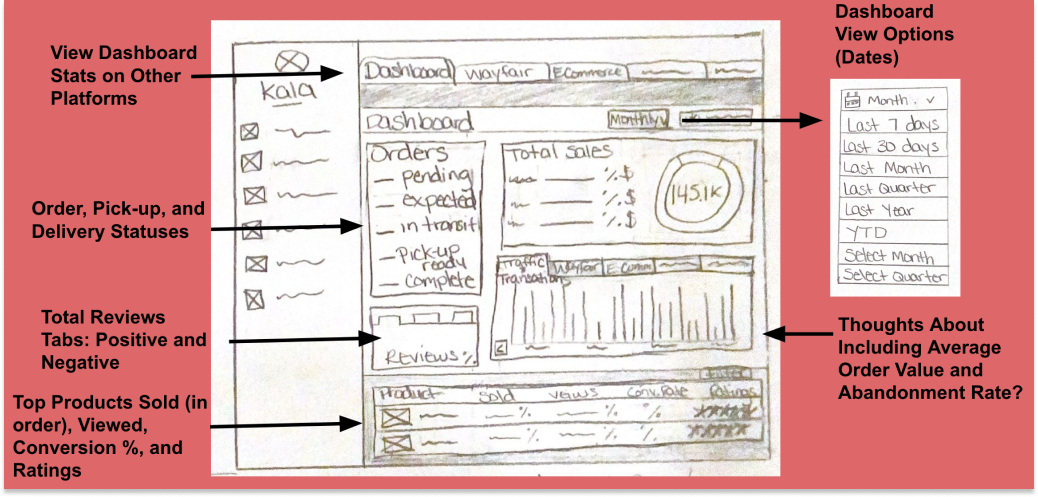 Dashboard
View Options
(Dates)
View Dashboard
Stats on Other
Platforms
Order, Pick-up, and
Delivery Statuses
Total Reviews
Tabs: Positive and
Negative
Top Products Sold (in
order), Viewed,
Conversion %, and
Ratings
Kala
Dashboard Wayfair ECommerce
Dashboard Monthly
Orders
pending
expected
in transit
Pick-up
ready
complete
Total Sales
% $
% $
% $
145.1K
Traffic Wayfair E.Comm
Transations
Reviews %
Product Sold Views Conv. Rate Ratings
% % %
% % %
Month
Last 7 days
Last 30 days
Last Month
Last Quarter
Last Year
YTD
Select Month
Select Quarter
Thoughts About
Including Average
Order Value and
Abandonment Rate?